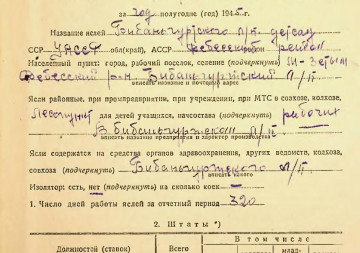 за год полугодие (год) 1945 г.
Название яслей Бибаньгуртского л/п. детсад
ССР УАССР обл(край), АССР район
Населенный пункт: город, рабочий поселок, селение (подчеркнуть)
р-н. Бибаньгуртский л/п
вписать название и почтовый адрес
Ясли районные, при промпредприятии, при учреждении, при МТС в совхозе, колхозе,
Лесопункт для детей учащихся, начсостава (подчеркнуть) рабочих
в Бибаньгуртском л/п
вписать название предприятия и характер производства
Ясли содержатся на средства органов здравоохранения, других ведомств, колхоза,
совхоза (подчеркнуть) Бибаньгуртского л/п.
вписать какого
Изолятор: есть, нет (подчеркнуть) на сколько коек —
1. Число дней работы яслей за отчетный период 320
2. Штаты*)
Должностей (ставок)
Всего
В том числе